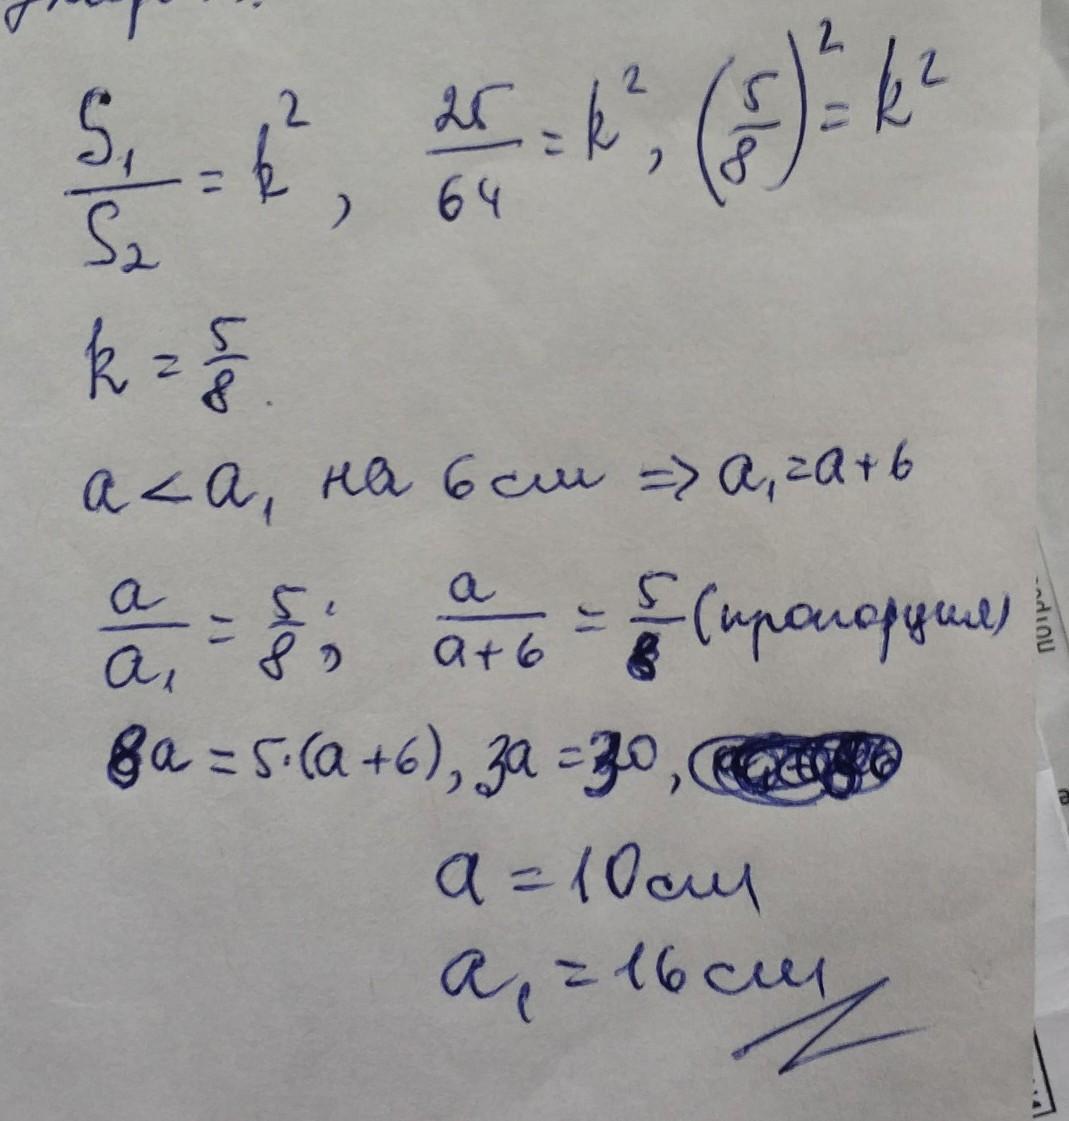 S₁/S₂ = k², 25/64 = k², (5/8)² = k²
k = 5/8.
a < a₁ на 6 см => a₁ = a + 6
a/a₁ = 5/8; a/(a+6) = 5/8 (пропорция)
8a = 5·(a+6), 3a = 30,
a = 10 см
a₁ = 16 см